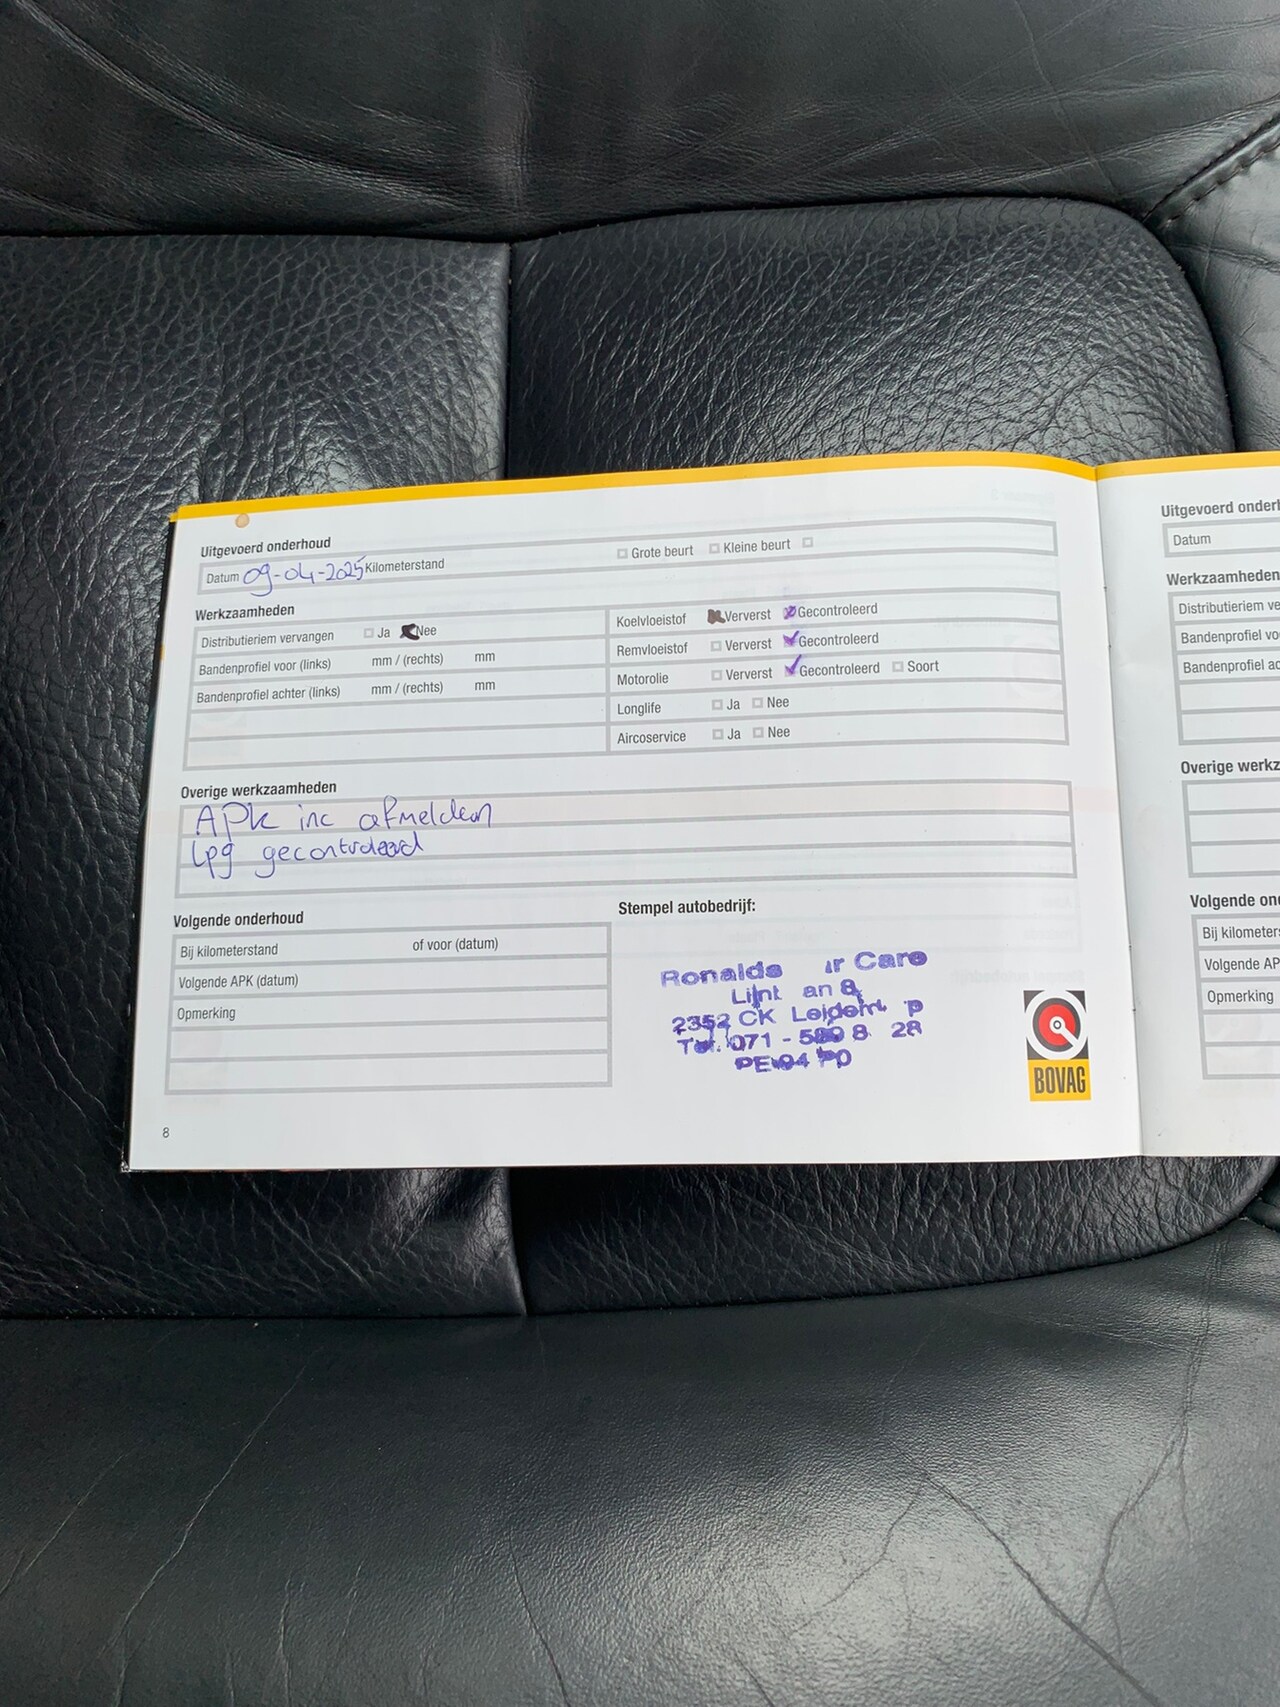 Uitgevoerd onderhoud
Datum 09-04-2025 Kilometerstand
Grote beurt Kleine beurt
Werkzaamheden
Distributieriem vervangen Ja Nee
Bandenprofiel voor (links) mm / (rechts) mm
Bandenprofiel achter (links) mm / (rechts) mm
Koelvloeistof Ververst Gecontroleerd
Remvloeistof Ververst Gecontroleerd
Motorolie Ververst Gecontroleerd Soort
Longlife Ja Nee
Aircoservice Ja Nee
Overige werkzaamheden
APk inc afmelden
Lpg gecontroleerd
Volgende onderhoud
Bij kilometerstand of voor (datum)
Volgende APK (datum)
Opmerking
Stempel autobedrijf:
Ronalds Care
2352 CK
Tel. 071 -
BOVAG
8
Uitgevoerd
Datum
Werkzaamheden
Distributieriem
Bandenprofiel
Bandenprofiel
Overige
Volgende
Bij
Volgende
Opmerking